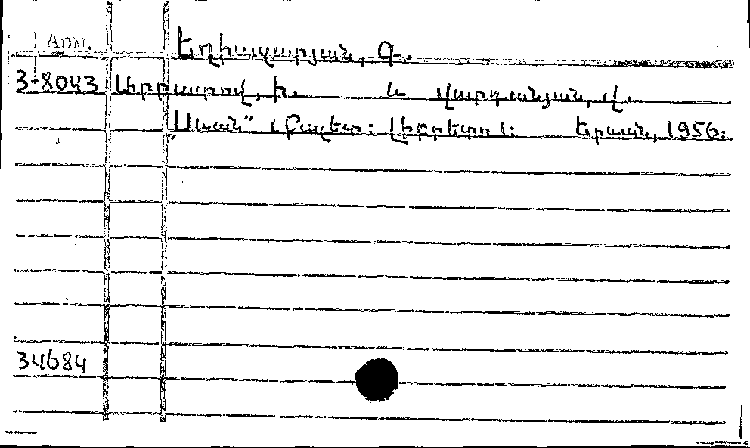 Arm. Եղիազարյան, Գ.
3-8043 Արբատով, Ի. և Վարդանյան, Վ.
„Սևան" : Բալետ: Լիբրետո: Երևան, 1956:
34684